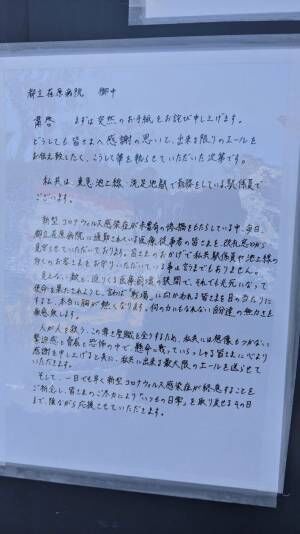 都立荏原病院　御中
貴啓　まずは突然のお手紙をお詫び申し上げます。
どうしても皆さまへ感謝の思いと、出来る限りのエールを
お伝え致したく、こうして筆を執らせていただいた次第です。
私共は、東急池上線、洗足池駅で勤務をしている駅係員で
ございます。
新型コロナウィルス感染症が未曽有の恐怖をもたらしている中、毎日、
都立荏原病院に通勤されている医療従事者の皆さまを、改札窓口から
見守らせていただいております。皆さまのおかげで私共駅係員や池上線の
多くのお客さまをお守りいただいている事は言うまでもありません。
見えない敵と、迫りくる医療崩壊の狭間で、それでも気丈になって
使命を果たされようと、言わば「戦場」に向かわれる皆さまを目の当たりに
すると、本当に胸が熱くなります。何の力にもなれない自分達の無力さを
無念に感じます。
人が人を救う。この尊き聖職を全うするため、私共には想像もつかない
緊迫感と責務と恐怖の中で、懸命に戦っていらっしゃる皆さまに心より
感謝を申し上げると共に、私共に出来る最大限のエールを送らせて
いただきます。
そして、一日でも早く新型コロナウィルス感染症が終息することを
ご祈念し、皆さまのご尽力により「いつもの日常」を取り戻せるその日
まで、陰ながら応援させていただきます。